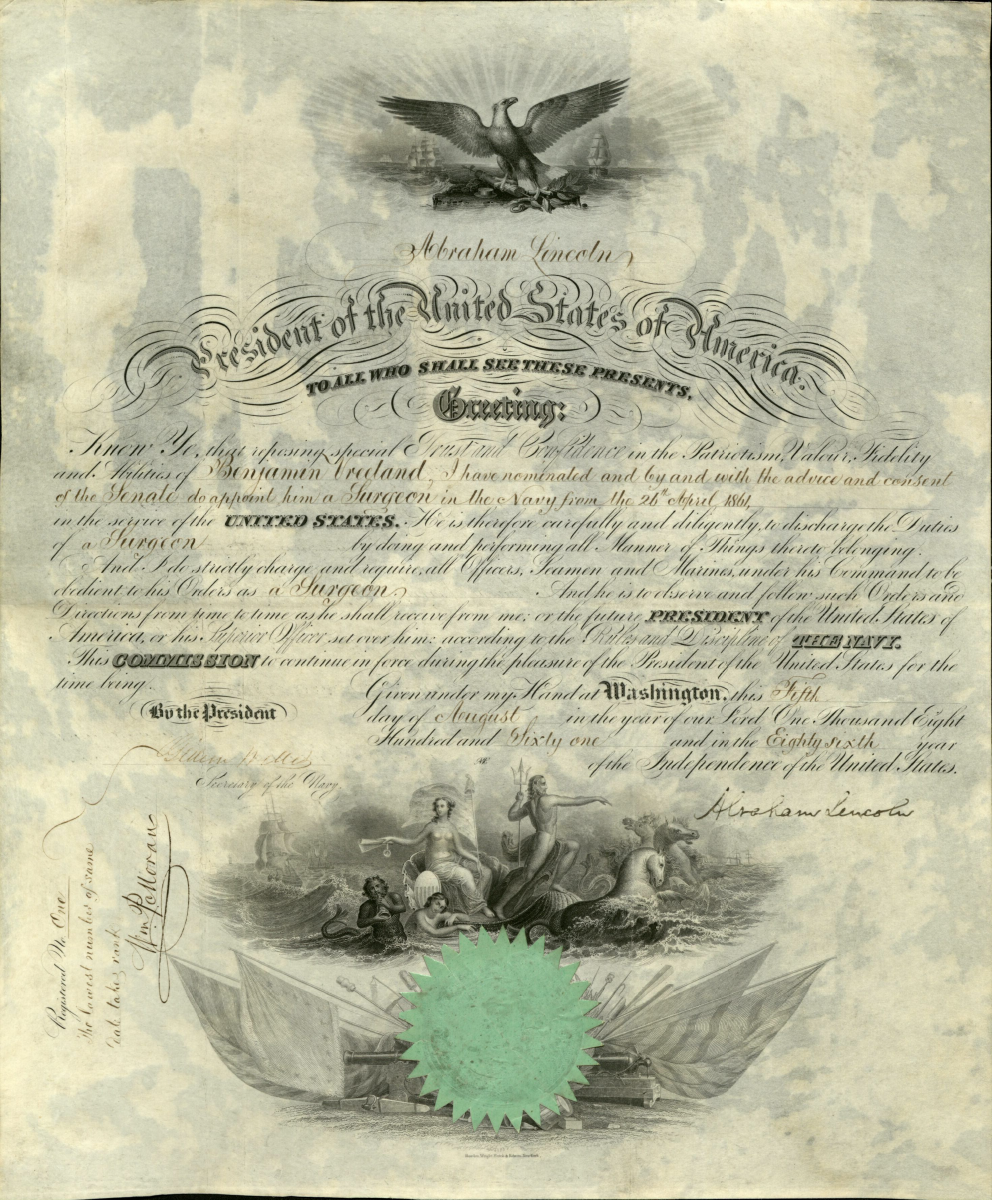 Abraham Lincoln
President of the United States of America.
TO ALL WHO SHALL SEE THESE PRESENTS,
Greeting:
Know Ye, that reposing special Trust and Confidence in the Patriotism, Valour, Fidelity
and Abilities of Benjamin Vreeland, I have nominated and by and with the advice and consent
of the Senate do appoint him a Surgeon in the Navy from the 26th April, 1861,
in the service of the UNITED STATES. He is therefore carefully and diligently, to discharge the Duties
of a Surgeon by doing and performing all Manner of Things thereto belonging.
And I do strictly charge, and require, all Officers, Seamen and Marines, under his Command to be
obedient to his Orders as a Surgeon And he is to observe and follow such Orders and
Directions from time to time as he shall receive from me; or the future PRESIDENT of the United States of
America, or his Superior Officer set over him; according to the Rules and Discipline of THE NAVY.
This COMMISSION to continue in force during the pleasure of the President of the United States for the
time being.
Given under my Hand at Washington, this Fifth
By the President
day of August in the year of our Lord One Thousand Eight
Hundred and Sixty one and in the Eighty sixth year
of the Independence of the United States.
Gideon Welles
Secretary of the Navy
Abraham Lincoln
Registered No. One
The lowest number of same
date takes rank
Wm. P. Moran